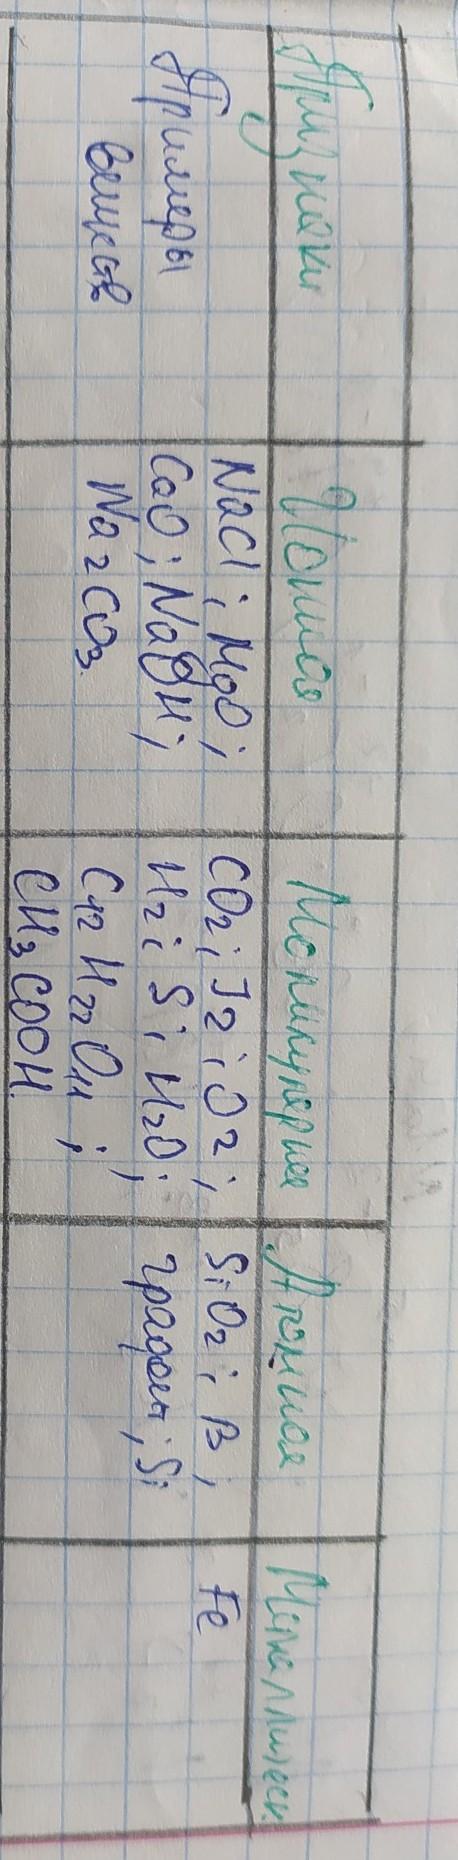 Признаки
Ионная
Молекулярная
Атомная
Металлическ
Примеры
веществ
NaCl; MgO;
CaO; NaOH;
Na2CO3.
CO2; J2; O2;
H2; S; H2O;
C12H22O11;
CH3COOH.
SiO2; B;
графен; Si
Fe